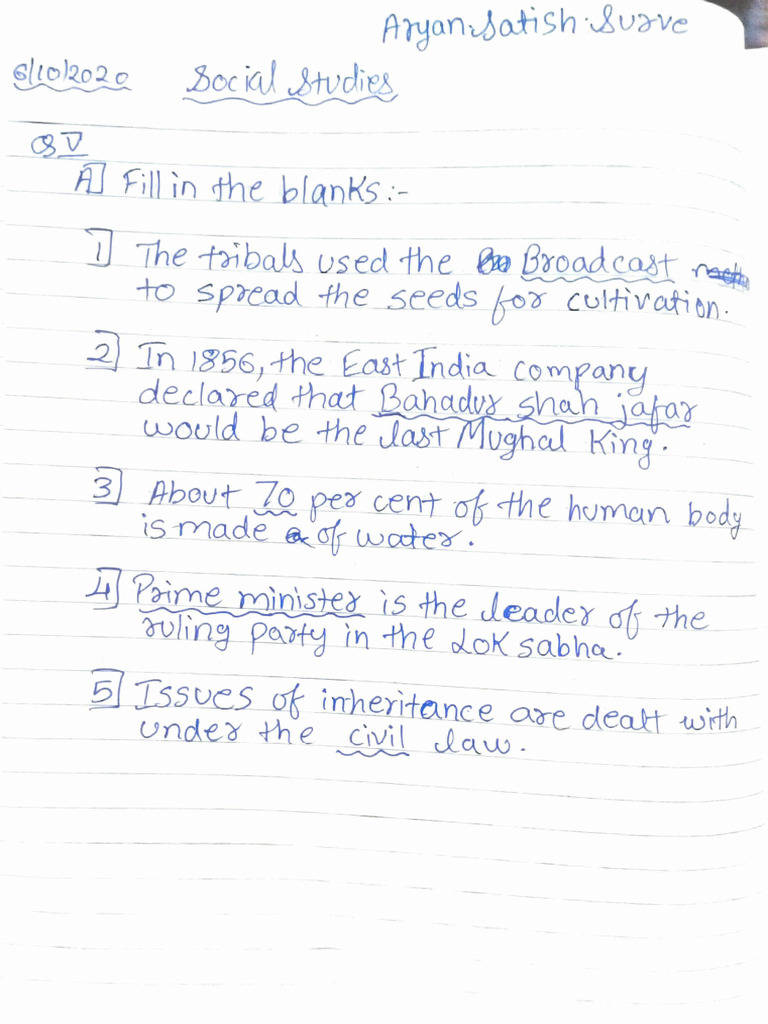 Aryan.Satish.Surve
6/10/2020 Social Studies
Q V
A] Fill in the blanks:-
1] The tribals used the Broadcast
to spread the seeds for cultivation.
2] In 1856, the East India company
declared that Bahadur shah jafar
would be the last Mughal King.
3] About 70 per cent of the human body
is made of water.
4] Prime minister is the leader of the
ruling party in the Lok sabha.
5] Issues of inheritance are dealt with
under the civil law.